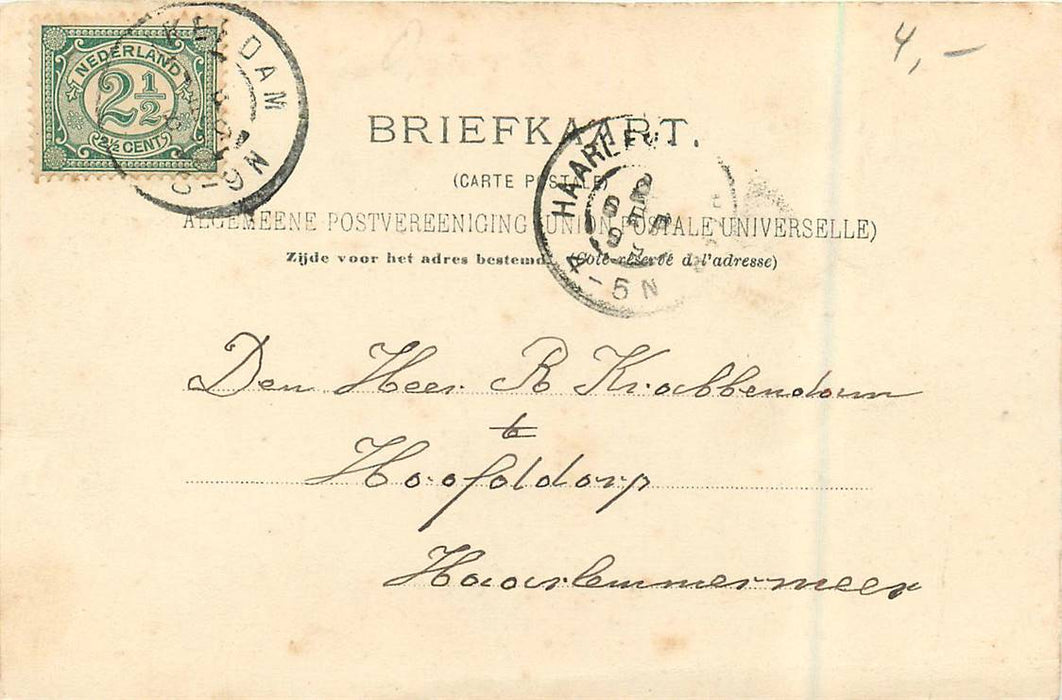 NEDERLAND
2 1/2
2 1/2 CENT
4,-
BRIEFKAART.
(CARTE POSTALE)
ALGEMEENE POSTVEREENIGING (UNION POSTALE UNIVERSELLE)
Zijde voor het adres bestemd. (Coté réservé à l'adresse)
4-5N
Den Heer R Krabbendam
te
Hoofddorp
Haarlemmermeer